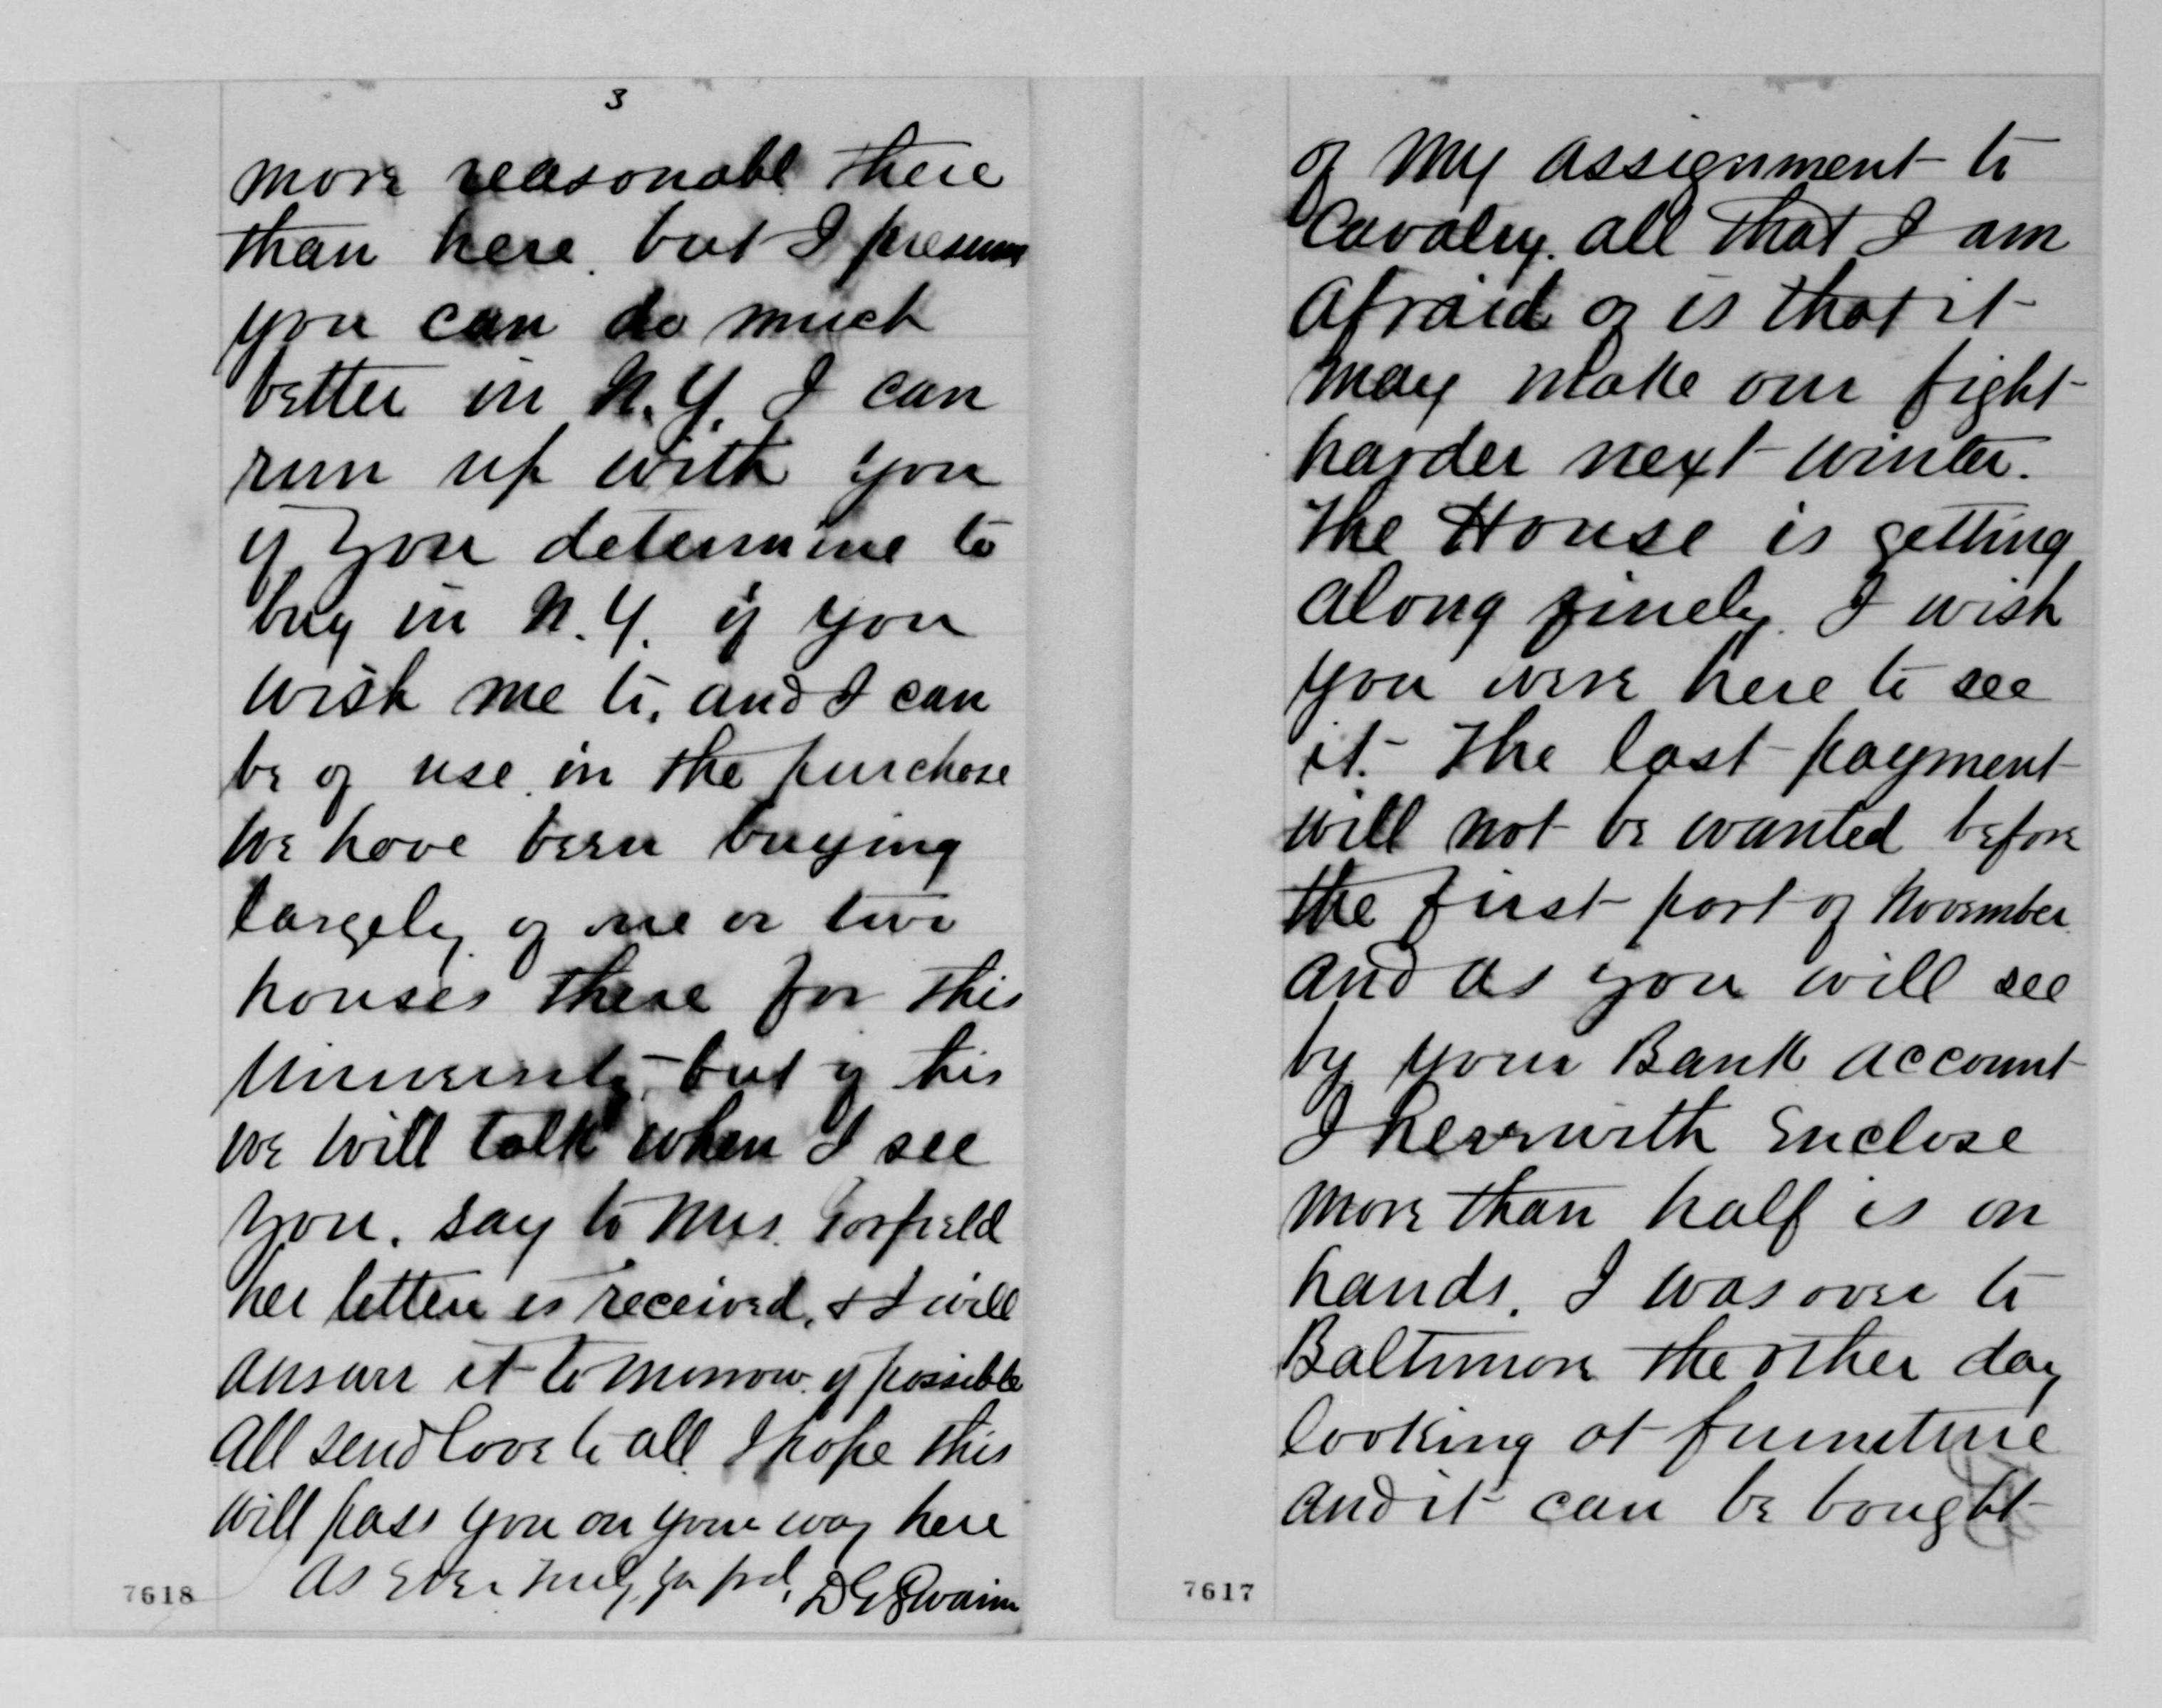 3
more reasonabl there
than here. but I presume
you can do much
better in N.Y. I can
run up with you
if you determine to
buy in N.Y. if you
wish me to, and I can
be of use in the purchase
We have been buying
largely of one or two
houses there for this
University, but of this
we will talk when I see
you. say to Mrs. Garfield
her letter is received, & I will
answer it to morrow if possible
All send love to all I hope this
will pass you on your way here
As Ever truly yr frd, D G Swaim
7618
of my assignment to
Cavalry. all that I am
afraid of is that it
may make our fight
harder next winter.
The House is getting
along finely. I wish
you were here to see
it. The last payment
will not be wanted before
the first part of November
and as you will see
by your Bank account
I herewith Enclose
more than half is on
hands. I was over to
Baltimore the other day
looking at furniture
and it can be bought
7617